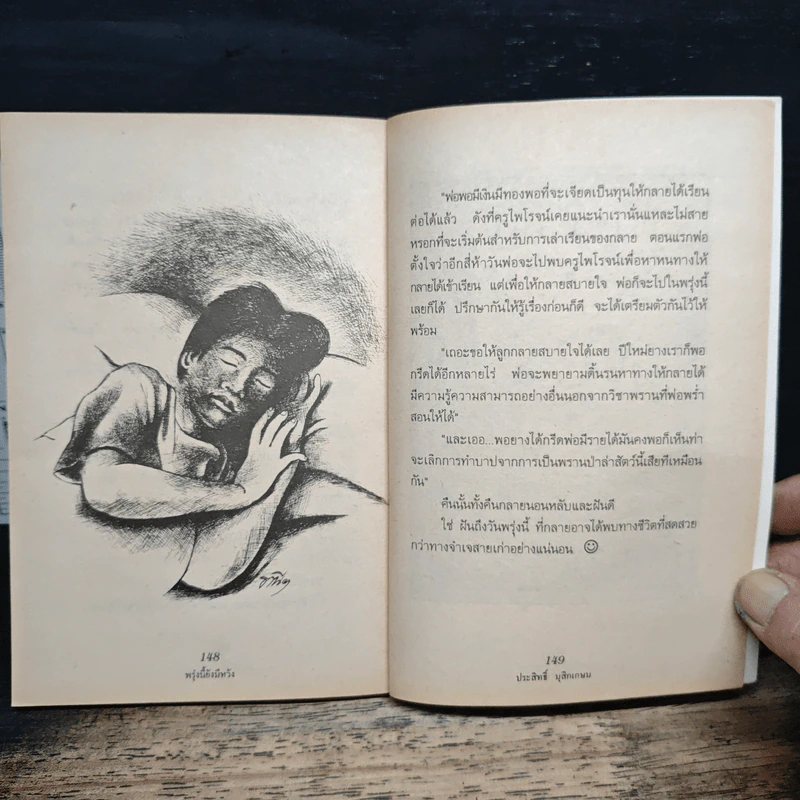 148
พรุ่งนี้ยังมีหวัง
"พ่อพอมีเงินมีทองพอที่จะเจียดเป็นทุนให้กลายได้เรียน
ต่อได้แล้ว ดังที่ครูไพโรจน์เคยแนะนำเรานั่นแหละไม่สาย
หรอกที่จะเริ่มต้นสำหรับการเล่าเรียนของกลาย ตอนแรกพ่อ
ตั้งใจว่าอีกสี่ห้าวันพ่อจะไปพบครูไพโรจน์เพื่อหาหนทางให้
กลายได้เข้าเรียน แต่เพื่อให้กลายสบายใจ พ่อก็จะไปในพรุ่งนี้
เลยก็ได้ ปรึกษากันให้รู้เรื่องก่อนก็ดี จะได้เตรียมตัวกันไว้ให้
พร้อม
"เถอะขอให้ลูกกลายสบายใจได้เลย ปีใหม่ยางเราก็พอ
กรีดได้อีกหลายไร่ พ่อจะพยายามดิ้นรนหาทางให้กลายได้
มีความรู้ความสามารถอย่างอื่นนอกจากวิชาพรานที่พ่อพร่ำ
สอนให้ได้"
"และเออ...พอยางได้กรีดพ่อมีรายได้มันคงพอก็เห็นท่า
จะเลิกการทำบาปจากการเป็นพรานป่าล่าสัตว์นี้เสียทีเหมือน
กัน"
คืนนั้นทั้งคืนกลายนอนหลับและฝันดี
ใช่ ฝันถึงวันพรุ่งนี้ ที่กลายอาจได้พบทางชีวิตที่สดสวย
กว่าทางจำเจสายเก่าอย่างแน่นอน ☺
149
ประสิทธิ์ มุสิกเกษม